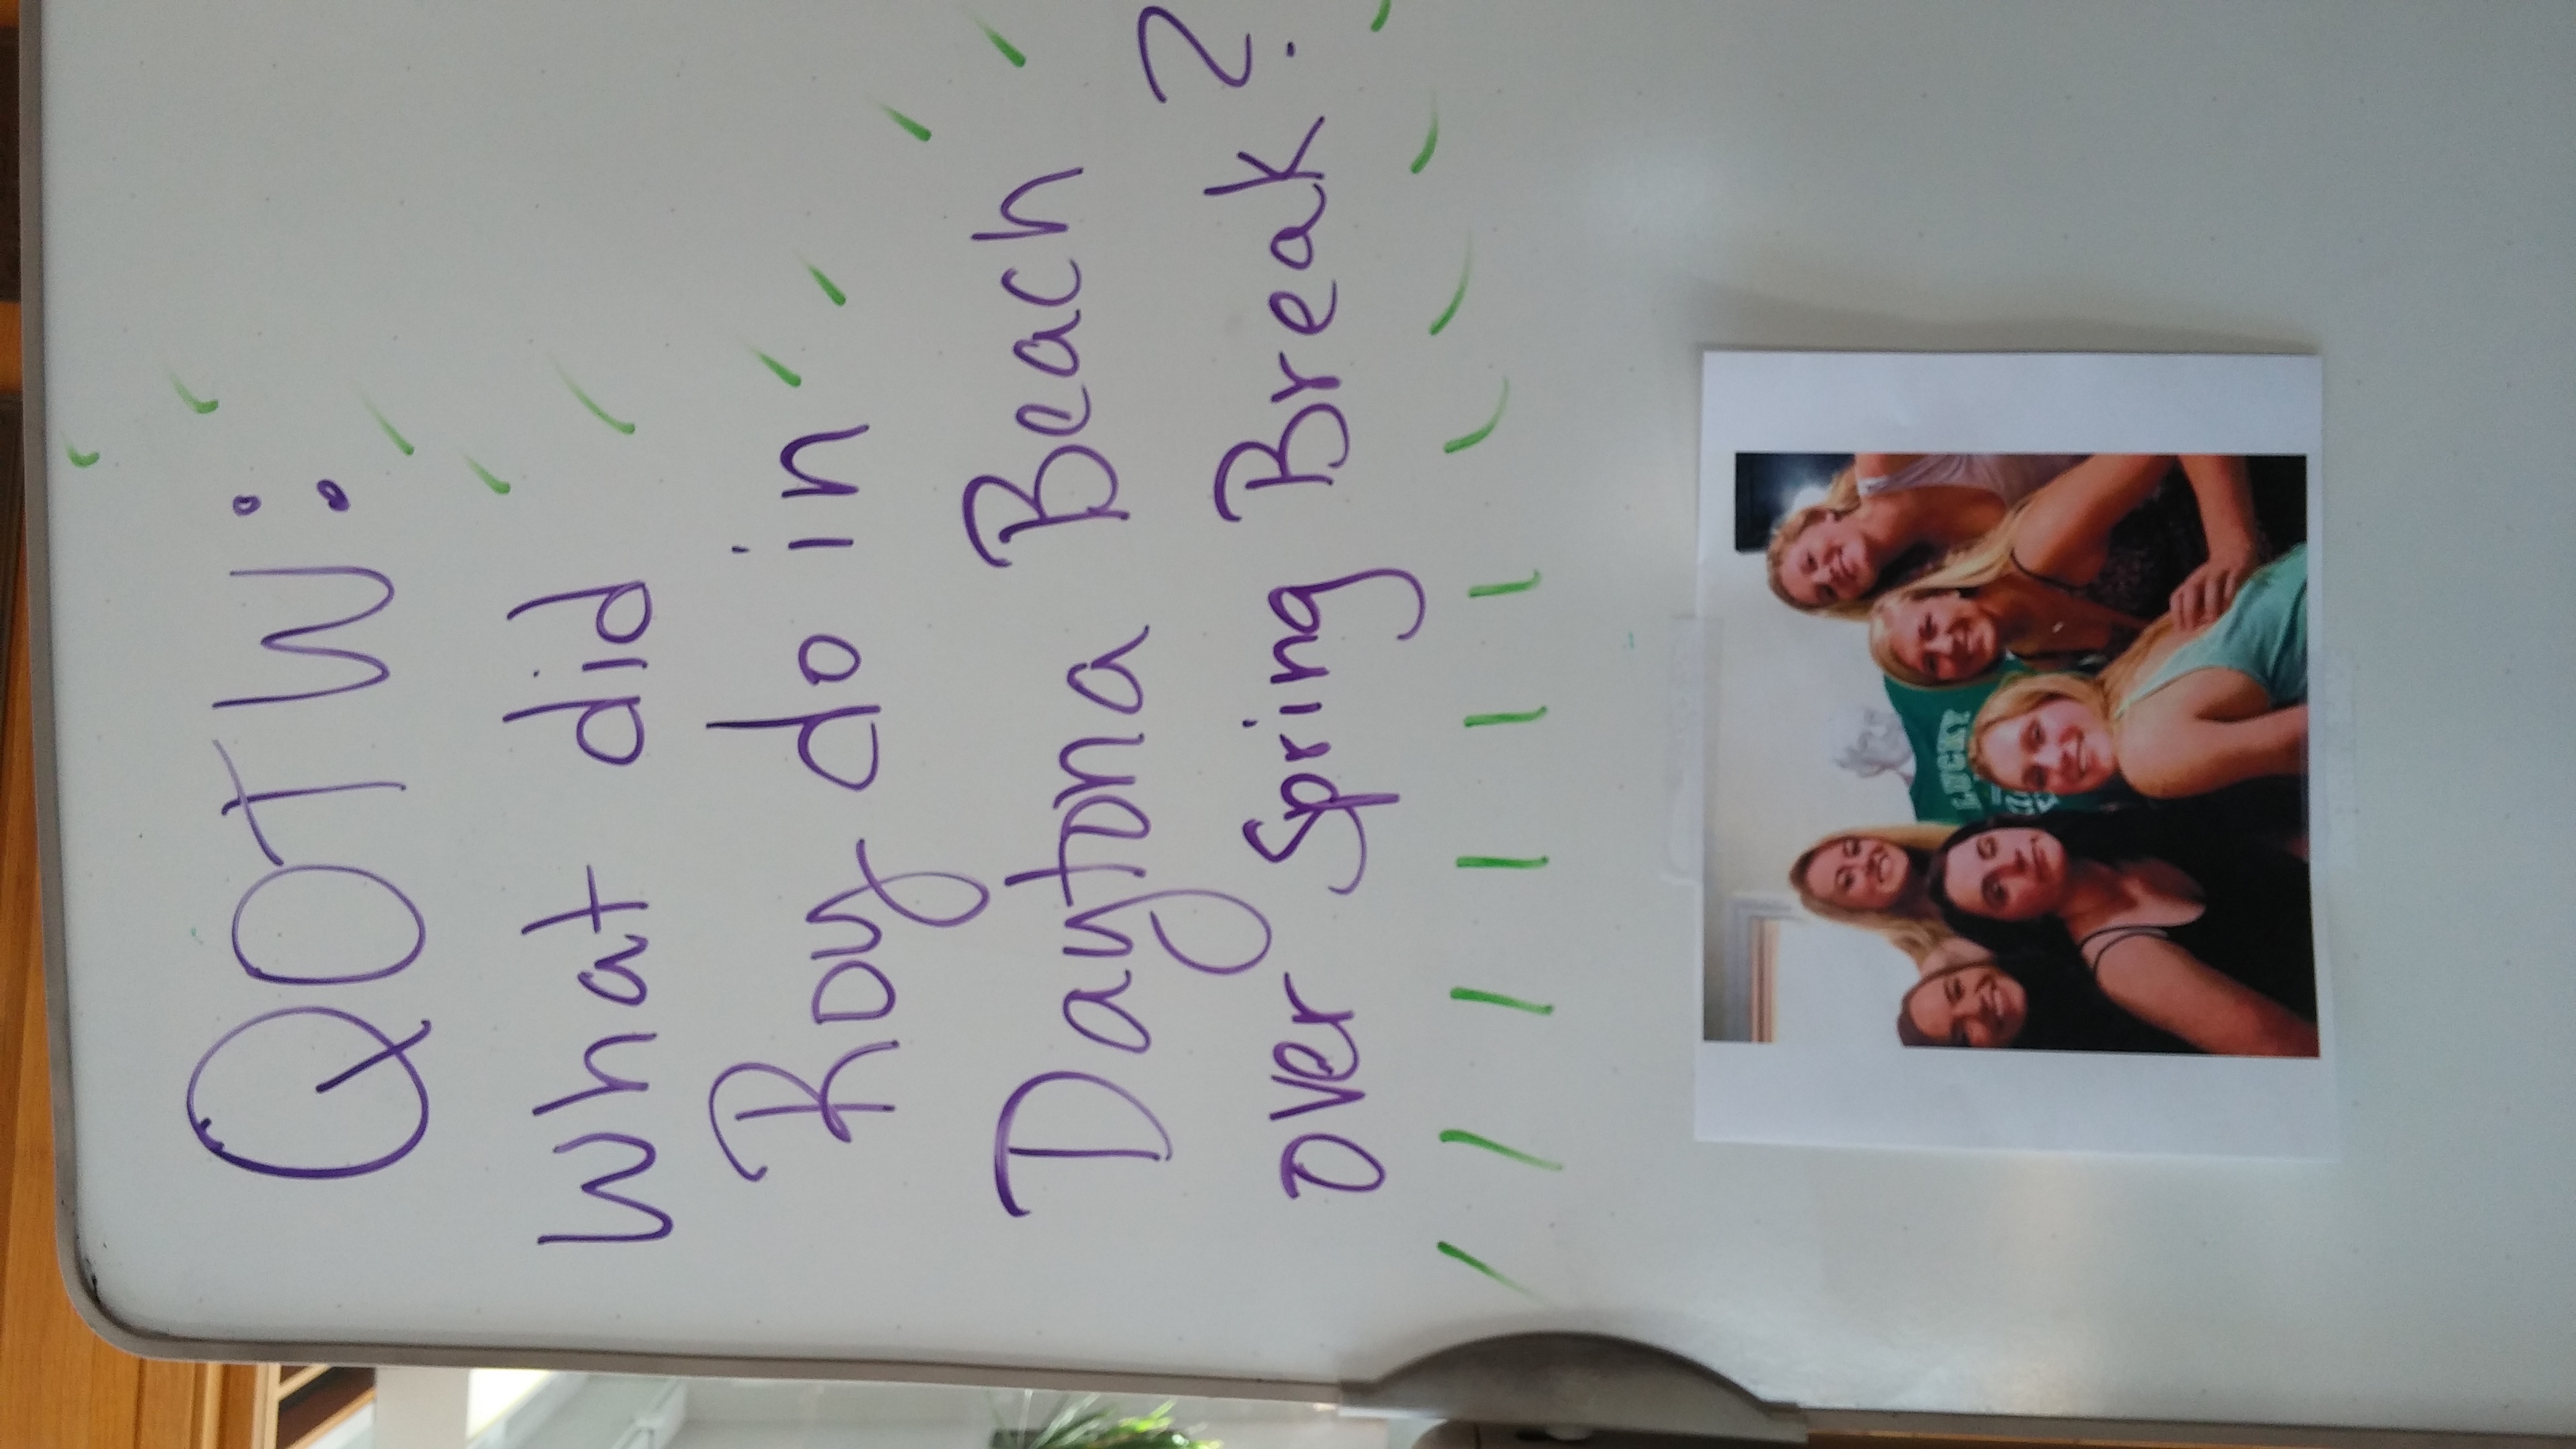 QOTW:
What did
Roy do in
Daytona Beach
over Spring Break?
LUCKY